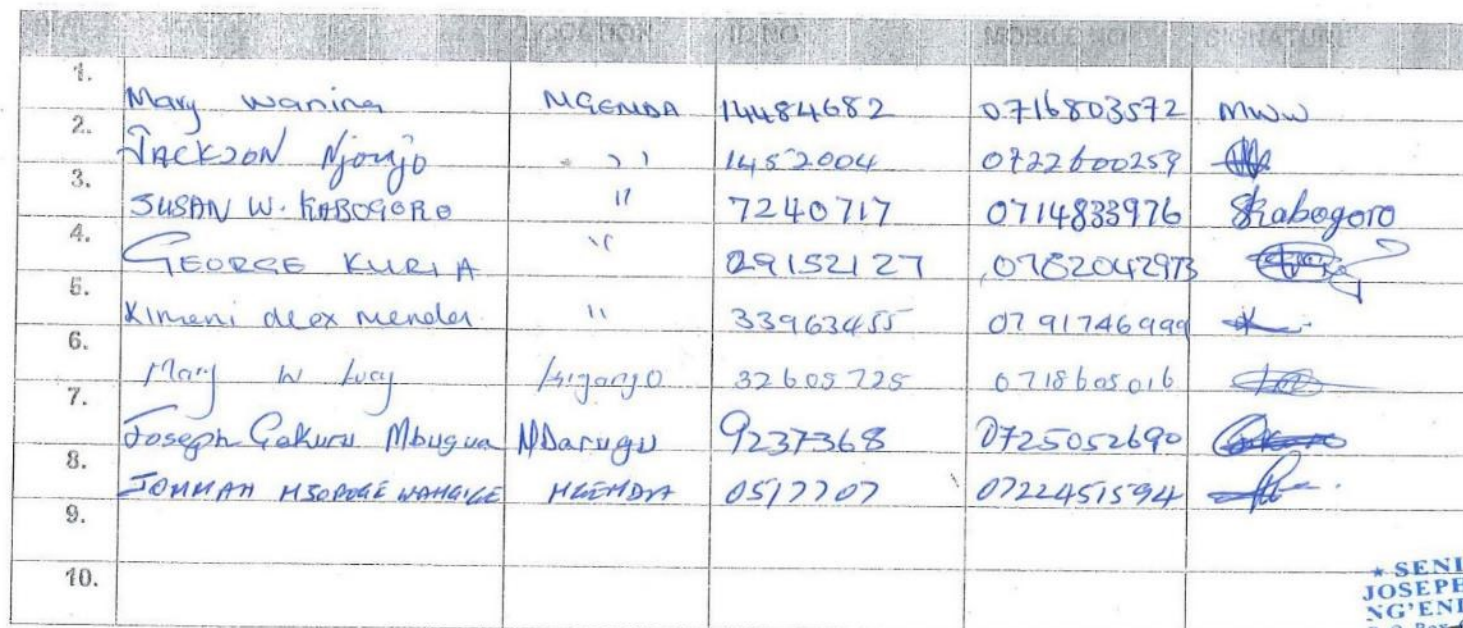 LOCATION ID NO MOBILE SIGNATURE
1.
Mary wanina MGENDA 14484682 0716803572 MWW
2.
JACKSON Njoujo " 1452004 0722600259
3.
SUSAN W. KABOGORO " 7240717 0714833976 Skabogoro
4.
GEORGE KURIA " 29152127 0782042973
5.
Kimeni " 33963455 0791746999
6.
Mary W Lucy 32605725 0718605016
7.
Joseph Gakuru Mbugua NDarugu 9237368 0725052690
8.
0517707 0722451594
9.
10.
★ SENI
JOSEPH
NG'ENI